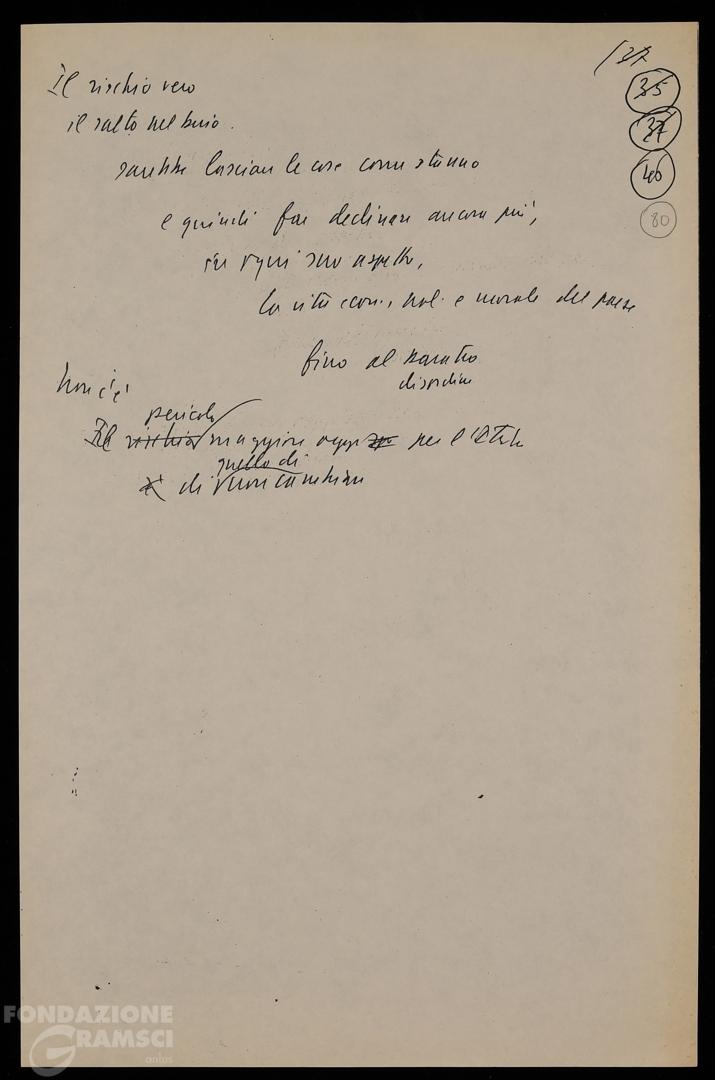 137
35
37
40
80
Il rischio vero
il salto nel buio.
sarebbe lasciare le cose come stanno
e quindi far declinare ancora più,
in ogni suo aspetto,
la vita econ., pol. e morale del paese
fino al baratro
disordine
Non c'è
pericolo
Il rischio maggiore oggi per l'Italia
quello di
di non cambiare
FONDAZIONE
GRAMSCI
onlus